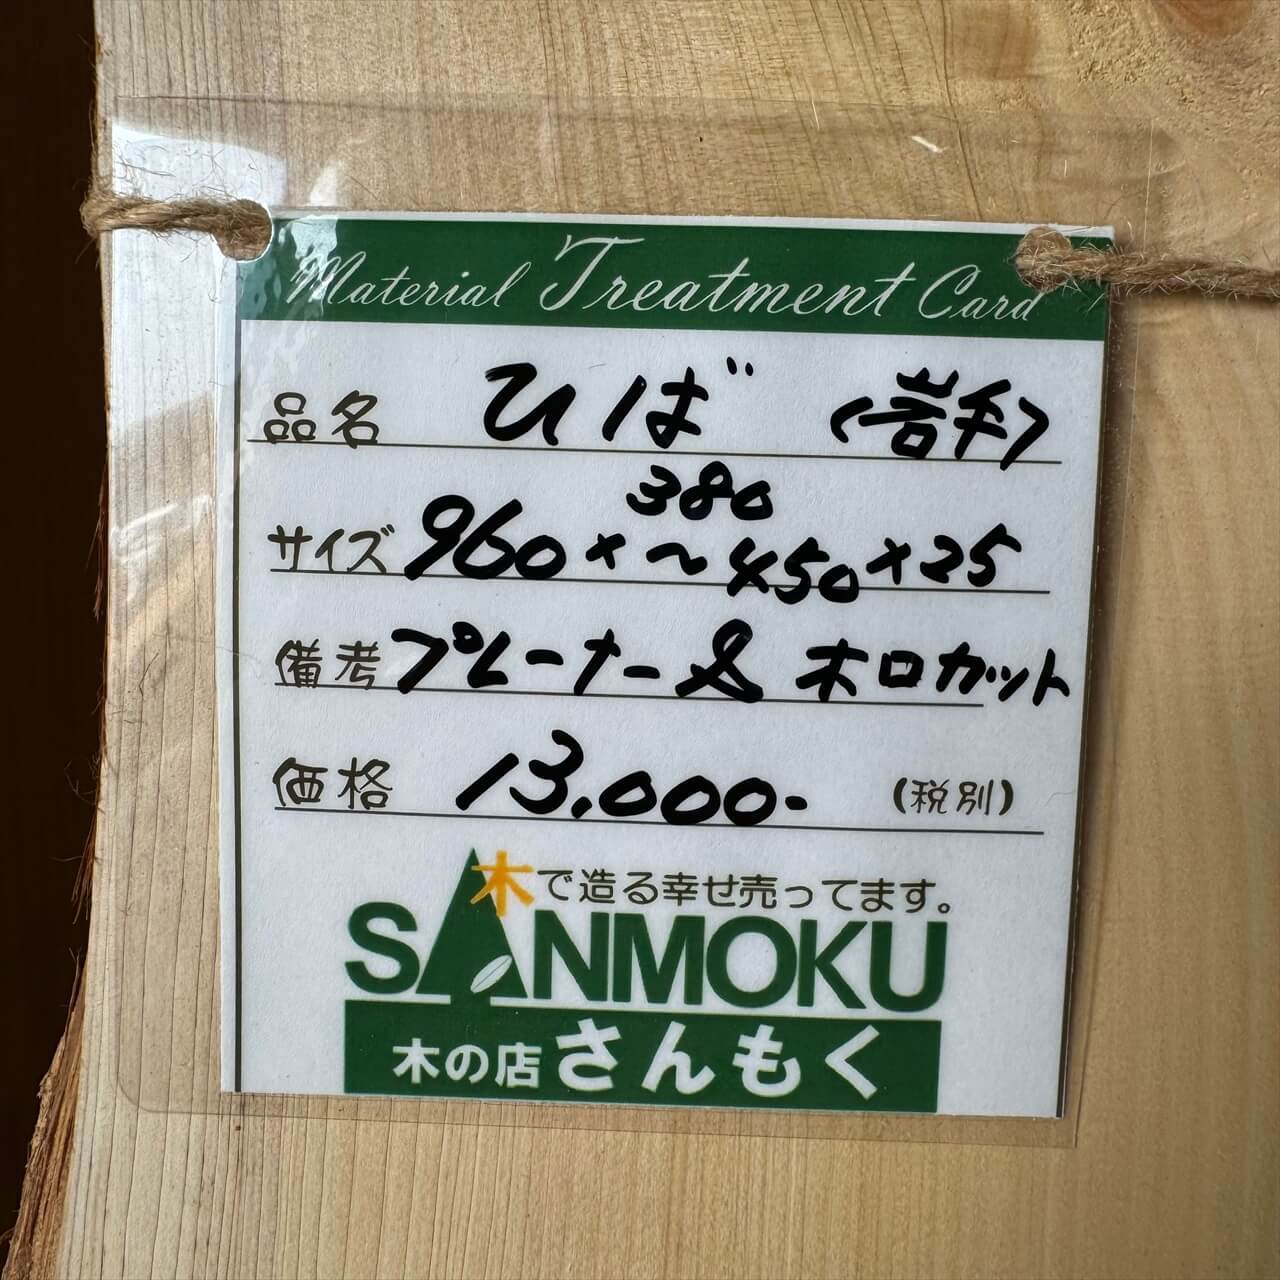 Material Treatment Card
品名 ひば (岩手)
380
サイズ 960×~450×25
備考 プレーナー& 木口カット
価格 13,000- (税別)
木で造る幸せ売ってます。
SANMOKU
木の店さんもく